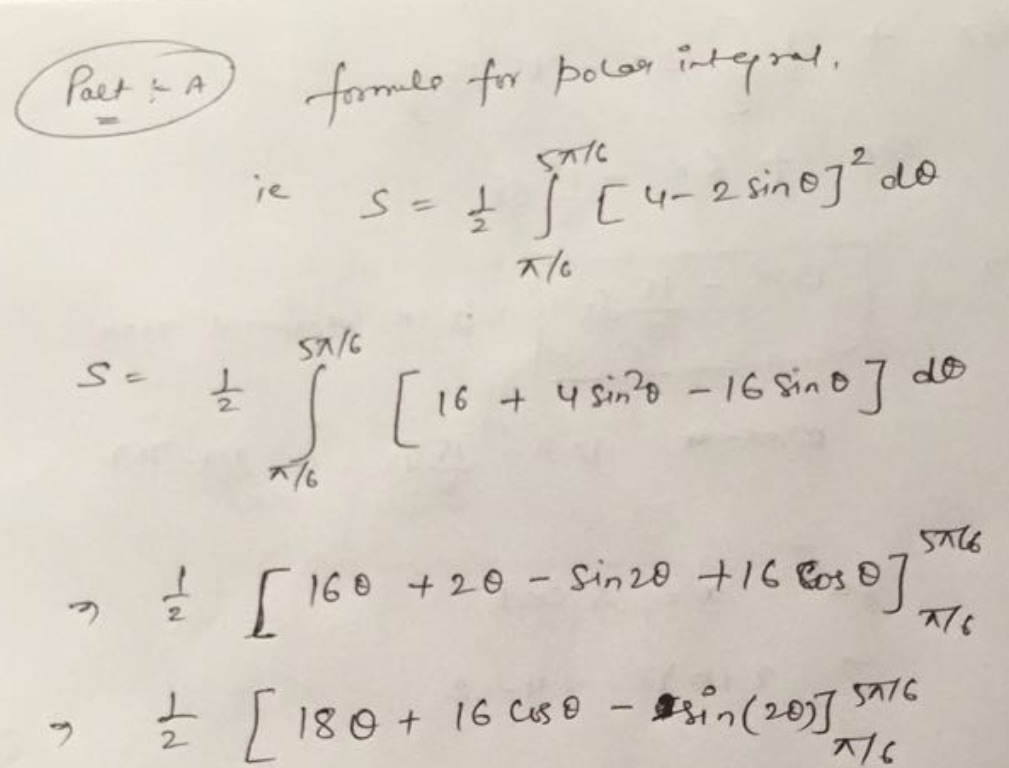 Part :- A formula for polar integral.
ie S = 1/2 ∫_{π/6}^{5π/6} [4 - 2 sin θ]² dθ
S = 1/2 ∫_{π/6}^{5π/6} [16 + 4 sin²θ - 16 sin θ] dθ
⇒ 1/2 [16θ + 2θ - sin 2θ + 16 cos θ]_{π/6}^{5π/6}
⇒ 1/2 [18θ + 16 cos θ - sin(2θ)]_{π/6}^{5π/6}